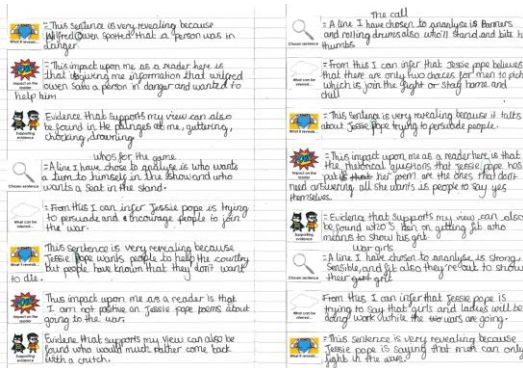 = This sentence is very revealing because
Wilfred Owen spotted that a person was in
danger.
= This impact upon me as a reader here is
that is giving me information that wilfred
owen saw a person in danger and wanted to
help him
Evidence that supports my view can also
be found in He plunges at me, guttering,
chocking, drowning
whos for the game
= A line I have chose to analyse is who wants
a turn to himself in the show and who
wants a seat in the stand.
= From this I can infer Jessie pope is trying
to persuade and encourage people to join
the war.
This sentence is very revealing because
Jessie Pope wants people to help the country
but people have known that they don't want
to die.
This impact upon me as a reader is that
I am not positive on Jessie pope poems about
going to the war.
Evidence that supports my view can also be
found who would much rather come back
with a crutch.
The call
= A line I have chosen to analyse is Banners
and rolling drums also who'll stand and bite h
thumbs
Choose sentence
= From this I can infer that Jessie pope believes
that there are only two choices for men to pick
which is join the fight or stay home and
chill
= This sentence is very revealing because it talks
about Jessie Pope trying to persuade people.
= This impact upon me as a reader here is that
the rhetorical questions that Jessie Pope has
put her poem are the ones that don't
need answering all she wants is people to say yes
themselves.
= Evidence that supports my view can also
be found who's keen on getting fit who
means to show his grit.
war girls
= A line I have chosen to analyse is strong,
Sensible, and fit also they're out to show
their grit
From this I can infer that Jessie pope is
trying to say that girls and ladies will be
doing work while the wars are going.
= This sentence is very revealing because
Jessie pope is saying that men can only
fight in the wars.